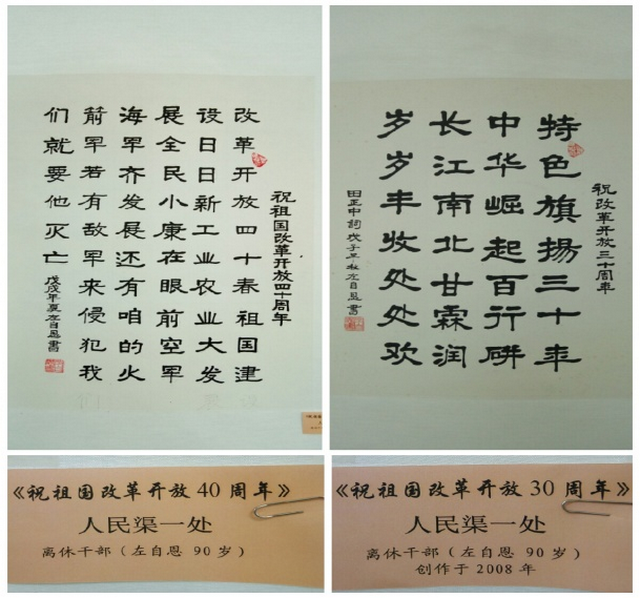 祝祖国改革开放四十周年
改革开放四十春祖国建
设日日新工业农业大发
展全民小康在眼前空军
海军齐发展还有咱的火
箭军若有敌军来侵犯我
们就要他灭亡
戊戌年夏左自恩書
祝改革开放三十周年
特色旗揚三十年
中华崛起百行研
长江南北甘霖润
岁岁丰收处处欢
田正中詞 戊子年秋左自恩書
《祝祖国改革开放 40 周年》
人民渠一处
离休干部（左自恩 90 岁）
《祝祖国改革开放 30 周年》
人民渠一处
离休干部（左自恩 90 岁）
创作于 2008 年